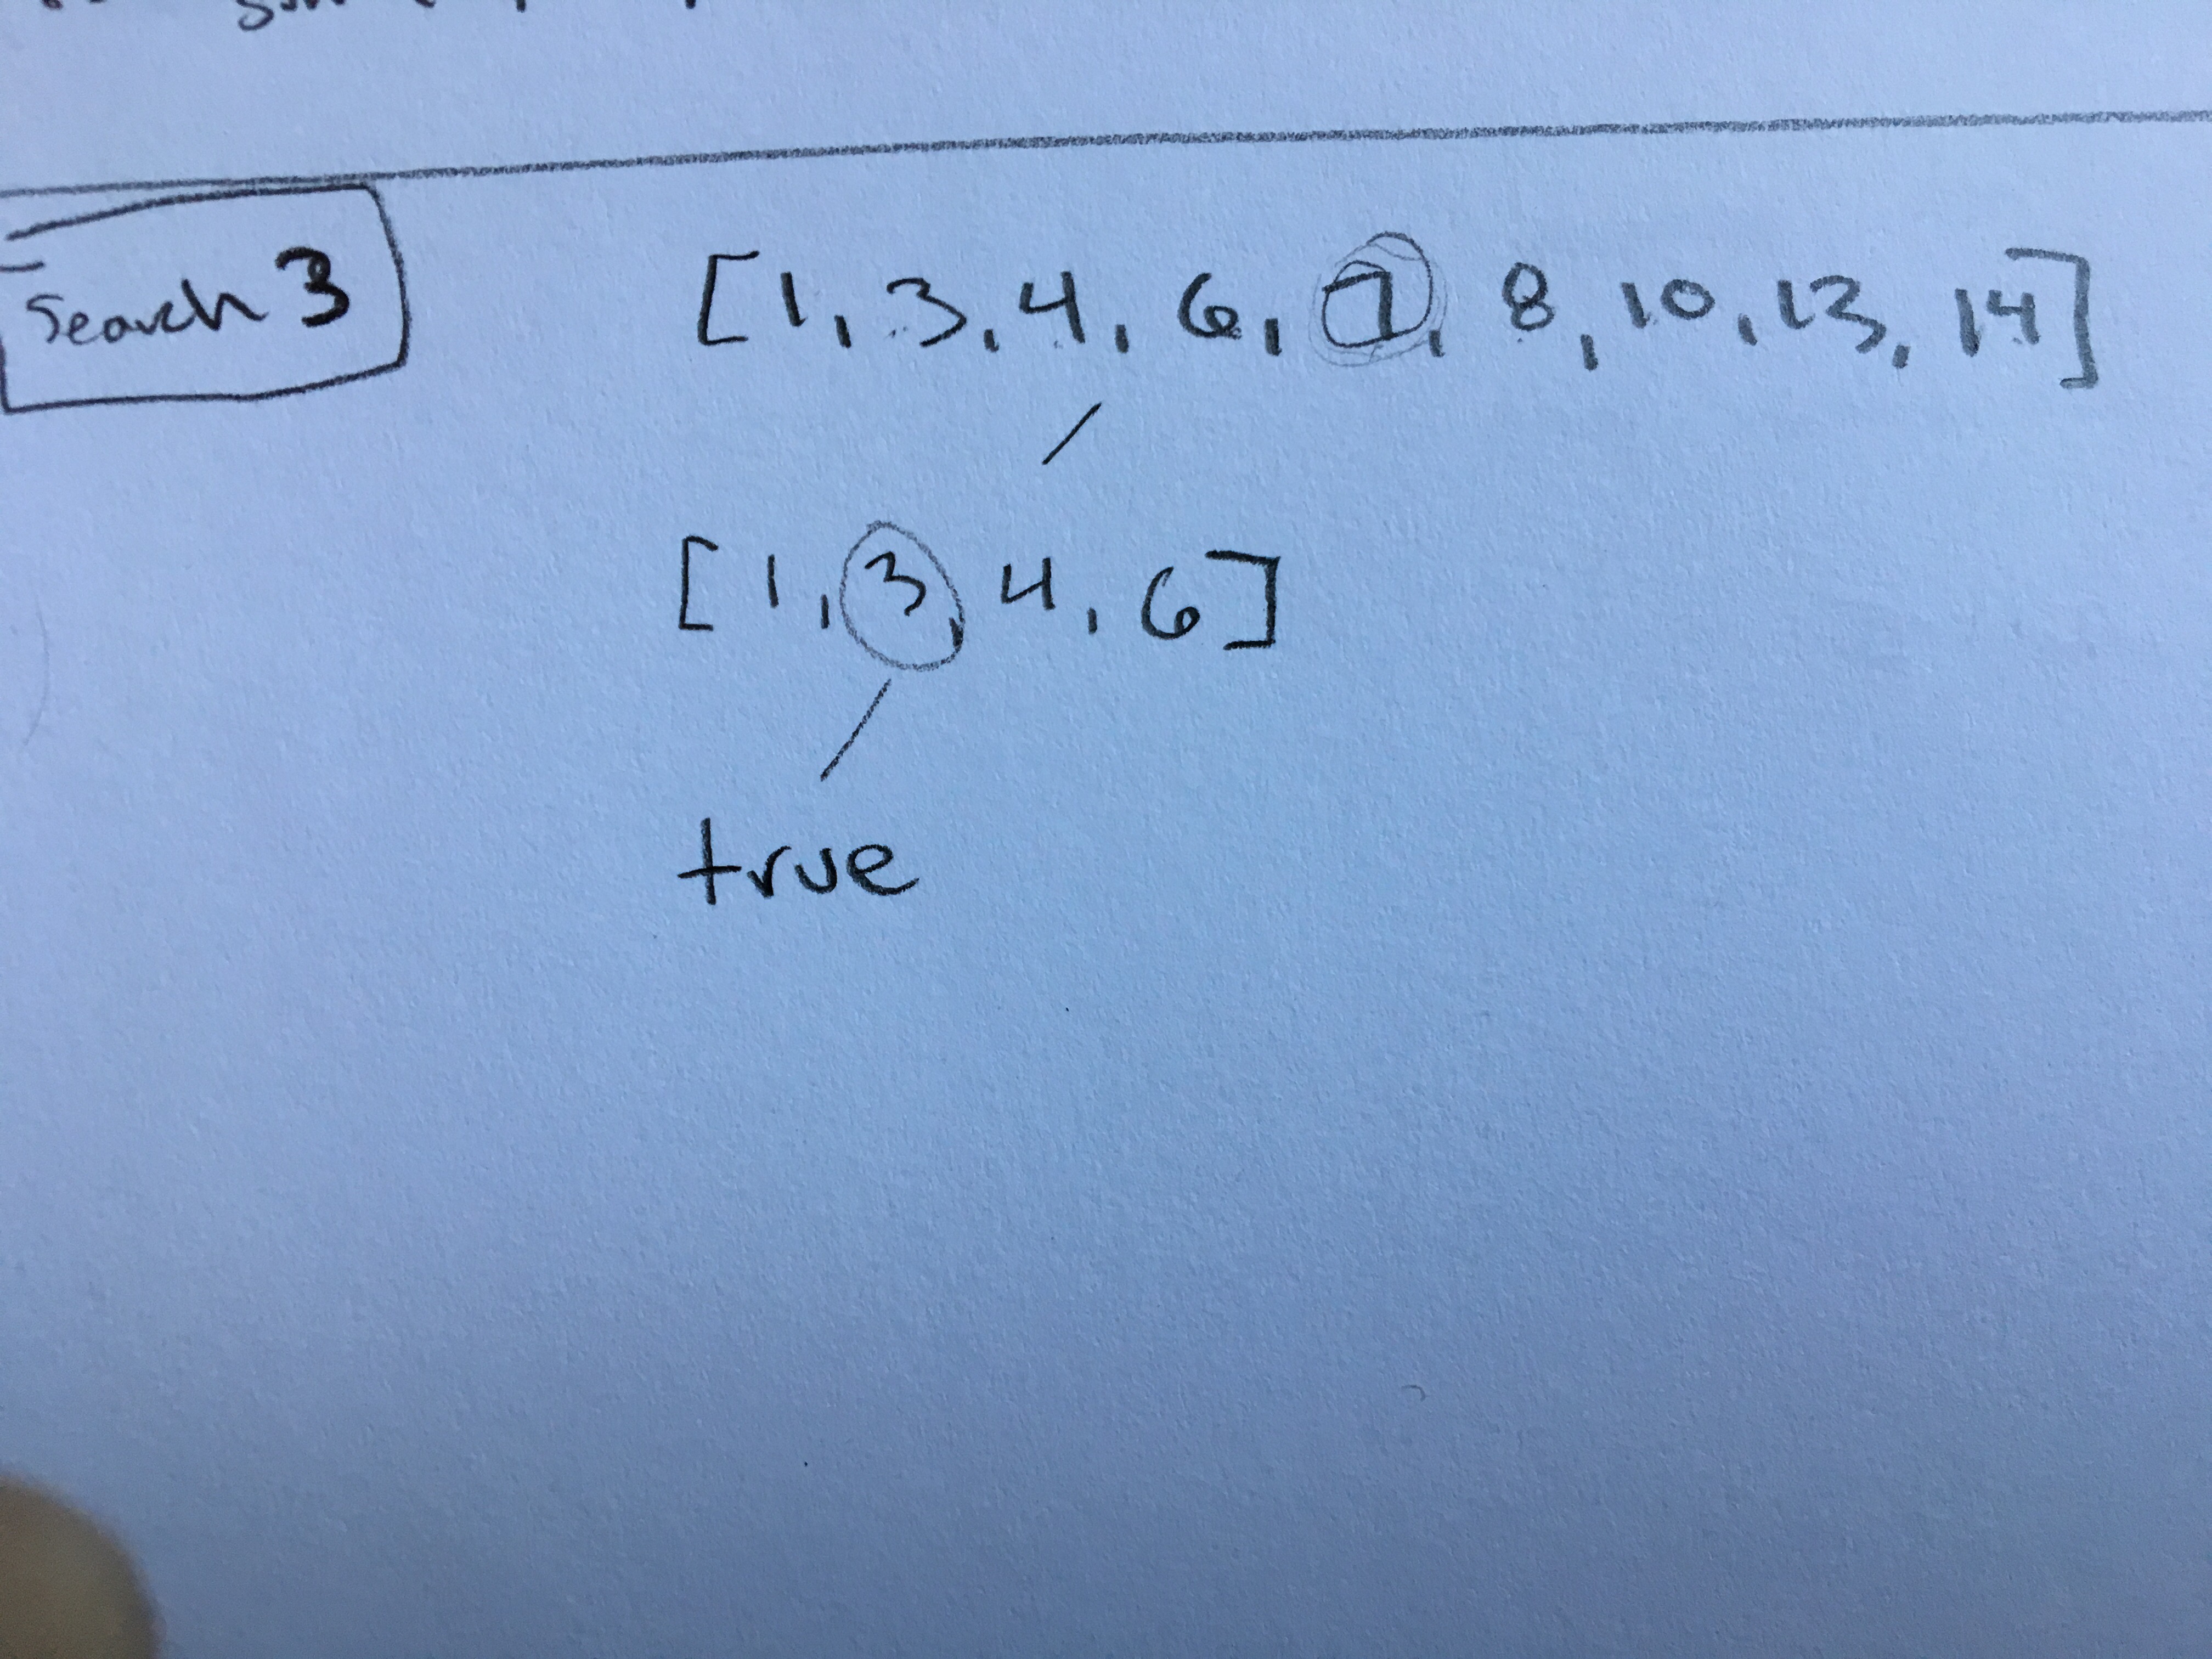 Search 3
[1, 3, 4, 6, 7, 8, 10, 13, 14]
[1, 3, 4, 6]
true